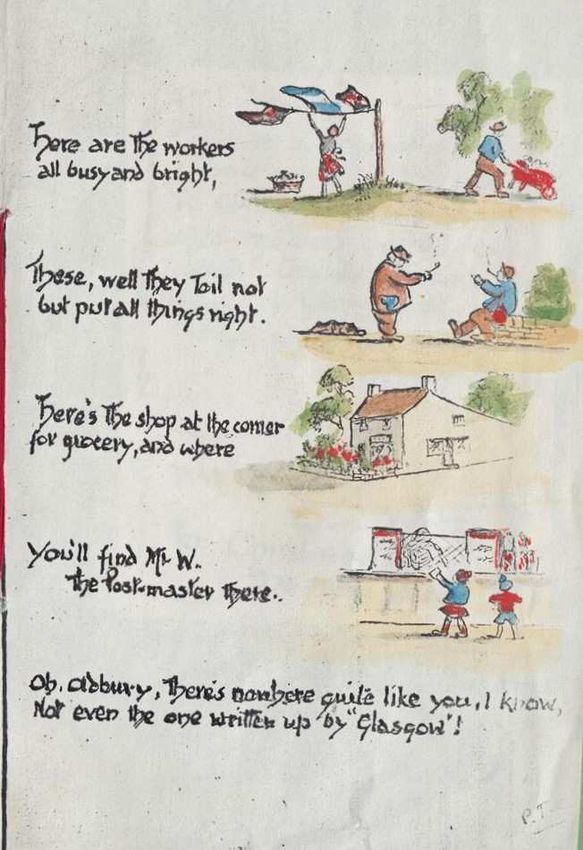 Here are the workers
all busy and bright,
These, well they Toil not
but put all things right.
Here's the shop at the corner
for grocery, and where
You'll find Mr W..
the Post-master there..
Oh, Oldbury, There's nowhere quite like you, I know,
Not even the one written up by "Glasgow"!
P.T.